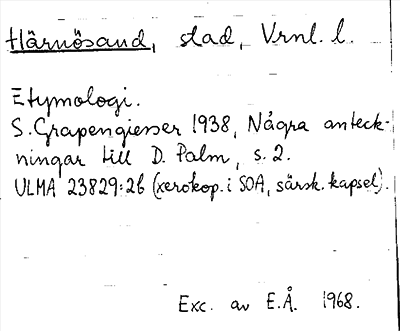 Härnösand, stad, Vrnl. l.
Etymologi.
S. Grapengiesser 1938, Några anteck-
ningar till D. Palm, s. 2.
ULMA 23829:26 (xerokop. i SOA, särsk. kapsel).
Exc. av E.Å. 1968.